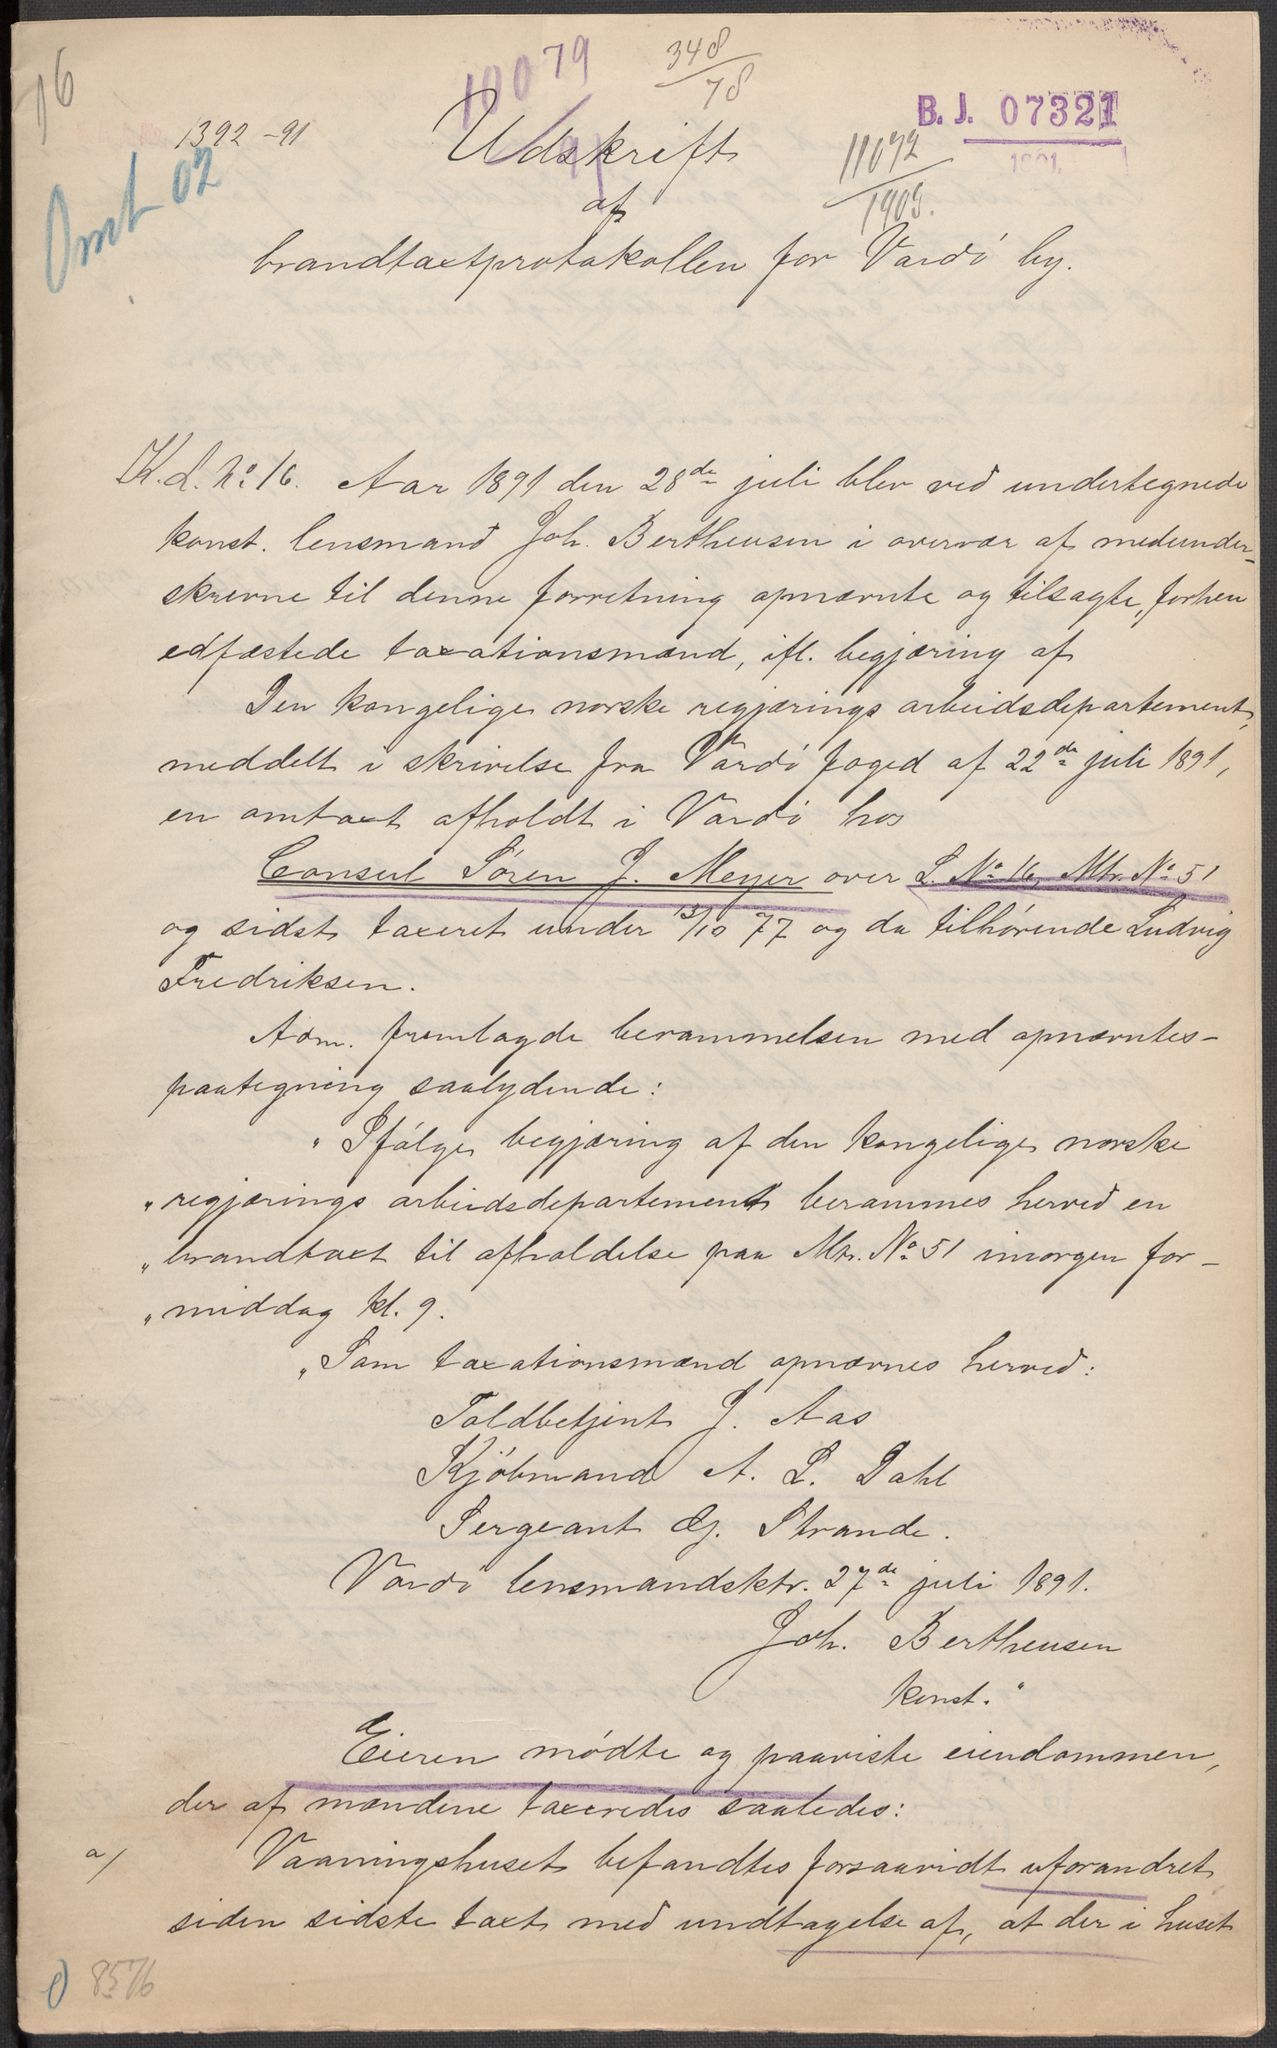 16
10079
91
348
78
B. J. 07321
1891.
1392-91
11072
1905.
Omt 02
Udskrift
af
brandtaxtprotokollen for Vardö by.
K. L. No 16. Aar 1891 den 28de juli blev ved undertegnede
konst. lensmand Joh. Bertheusen i overvær af medunder-
skrevne til denne forretning opnævnte og tilsagte, forhen
edfæstede taxationsmænd, ifl. begjæring af
Den kongelige norske regjærings arbeidsdepartement,
meddelt i skrivelse fra Vardö foged af 22de juli 1891,
en omtaxt afholdt i Vardö hos
Consul Sören J. Meyer over L. No 16, Mtr. No 51
og sidst taxeret under 13/10 77 og da tilhörende Ludvig
Fredriksen.
Adm. fremlagde berammelsen med opnævntes-
paategning saalydende:
"Ifölge begjæring af den kongelige norske
"regjærings arbeidsdepartement berammes herved en
"brandtaxt til afholdelse paa Mtr. No 51 imorgen for-
"middag kl. 9.
"Som taxationsmænd opnævnes herved:
Toldbetjent J. Aas
Kjöbmand A. L. Dahl
Sergeant Gj. Strande.
Vardö lensmandsktr. 27de juli 1891.
Joh. Bertheusen
konst."
Eieren mödte og paaviste eiendommen,
der af mændene taxeredes saaledes:
a/ Vaaningshuset befandtes forsaavidt uforandret
siden sidste taxt med undtagelse af, at der i huset
8576